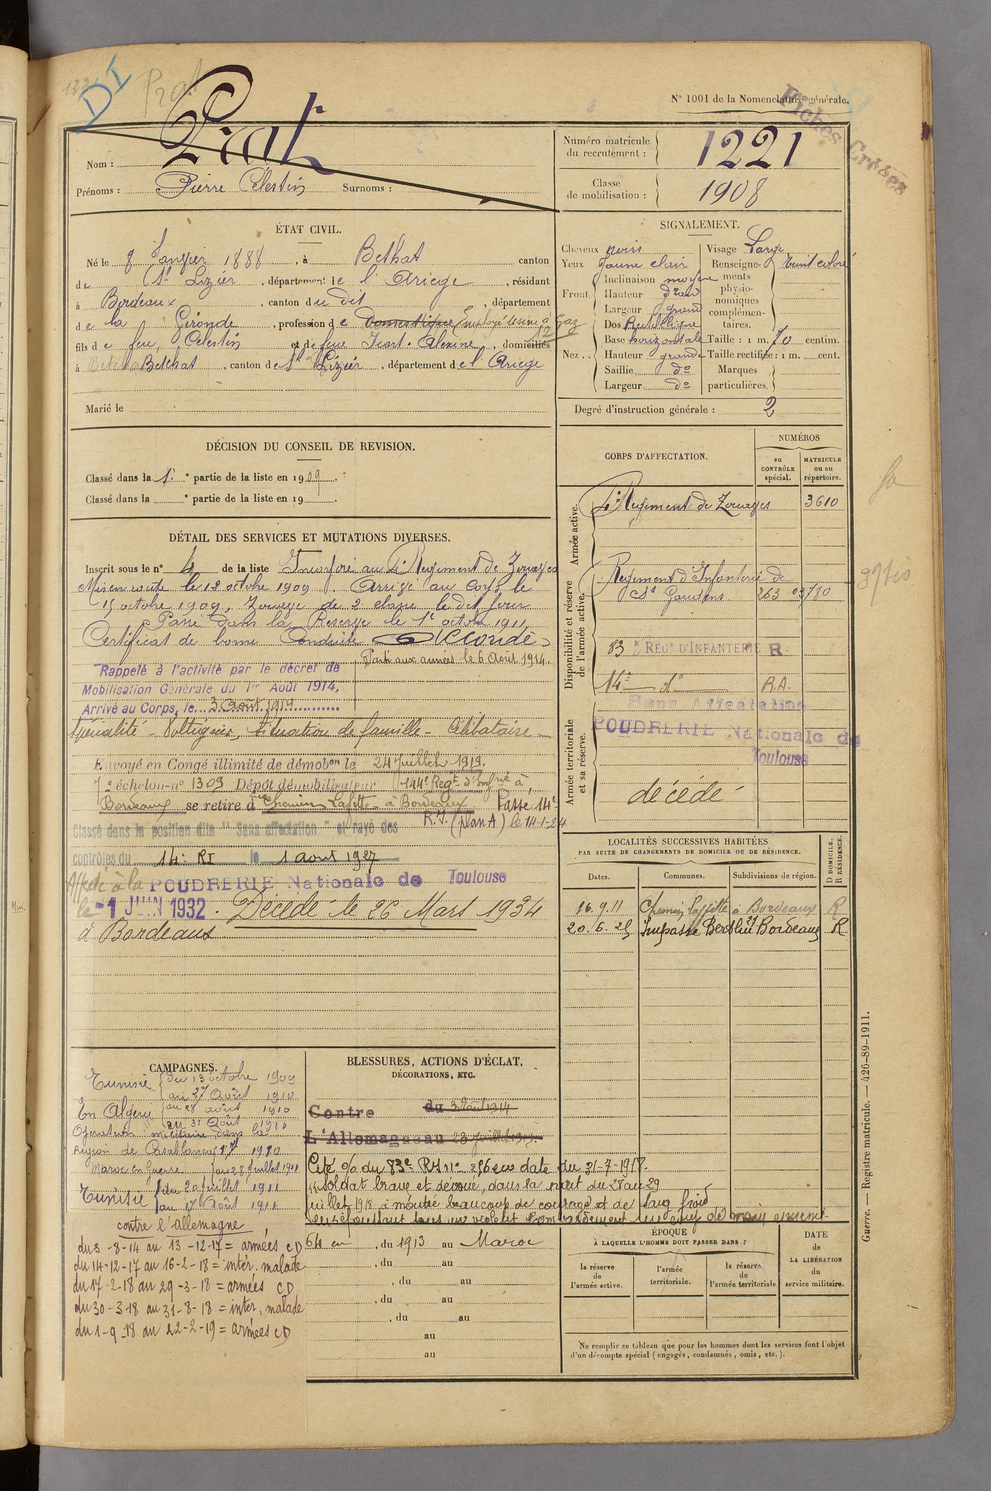 N° 1001 de la Nomenclature générale.
Fiches Créées
D I
Prat
Nom : Prat
Prénoms : Pierre Celestin Surnoms :
Numéro matricule du recrutement : 1221
Classe de mobilisation : 1908
ÉTAT CIVIL.
Né le 8 Janvier 1888, à Bethat canton
de St Lizier, département de l'Ariege, résidant
à Bordeaux, canton du dit, département
de la Gironde, profession de Domestique Employé usine à Gaz
fils de feu Celestin et de feue Alexine, domiciliés
à Betchat, canton de St Lizier, département de l'Ariege
Marié le
SIGNALEMENT.
Cheveux noirs
Yeux jaune clair
Front. Inclinaison moyen
Hauteur grand
Largeur grand
Nez... Dos Rectiligne
Base horizontale
Hauteur grande
Saillie do
Largeur do
Visage Large
Renseignements physionomiques complémentaires. Teint coloré
Taille : 1 m. 70 centim.
Taille rectifiée : 1 m. cent.
Marques particulières.
Degré d'instruction générale : 2
DÉCISION DU CONSEIL DE REVISION.
Classé dans la 1e partie de la liste en 1909.
Classé dans la e partie de la liste en 19
DÉTAIL DES SERVICES ET MUTATIONS DIVERSES.
Inscrit sous le n° 4 de la liste Incorporé au 4e Régiment de Zouaves
Mis en route le 12 octobre 1909 Arrivé au Corps le
15 octobre 1909, Zouave de 2e classe le dit jour
Passé dans la Réserve le 1er octobre 1911
Certificat de bonne Conduite Accordé
Rappelé à l'activité par le décret de
Mobilisation Générale du 1er Août 1914,
Arrivé au Corps, le 3 août 1914
Parti aux armées le 6 Août 1914.
Spécialité - Voltigeur, situation de famille - Célibataire
Envoyé en Congé illimité de démobon le 24 juillet 1919.
7e échelon no 1309 Dépôt démobilisateur 144e Regt d'Infrie à
Bordeaux se retire à Chemin Lafitte à Bordeaux Passé 14e
R.I. (plan A) le 14-1-24
Classé dans la position dite "Sans affectation" et rayé des
contrôles du 14e RI le 1 aout 1927
Affecté à la POUDRERIE Nationale de Toulouse
le 1 JUIN 1932. Décédé le 26 Mars 1934
à Bordeaux
CORPS D'AFFECTATION.
NUMÉROS
au CONTRÔLE spécial.
MATRICULE ou au répertoire.
Armée active.
4e Régiment de Zouaves 3610
Disponibilité et réserve de l'armée active.
Régiment d'Infanterie de
St Gaudens. 263 03780
83e RÉGt D'INFANTERIE R
14e do R.A.
Sans Affectation
POUDRERIE Nationale de
Toulouse
Armée territoriale et sa réserve.
décédé
LOCALITÉS SUCCESSIVES HABITÉES
PAR SUITE DE CHANGEMENTS DE DOMICILE OU DE RÉSIDENCE.
Dates. Communes. Subdivisions de région. D DOMICILE. R RÉSIDENCE.
16.9.11 Chemin Laffitte à Bordeaux R
20.6.25 Impasse Berthin 27 Bordeaux R
CAMPAGNES.
Tunisie du 13 octobre 1909
au 27 Août 1910
En Algérie du 28 août 1910
au 31 Août 1910
Opération militaire dans la
région de Casablanca 1910
Maroc en Guerre
Tunisie du 20 juillet 1911
au 17 Août 1911
contre l'allemagne
du 3-8-14 au 13-12-17 = armées CD
du 14-12-17 au 16-2-18 = intér. malade
du 17-2-18 au 29-3-18 = armées CD
du 30-3-18 au 31-8-18 = intér. malade
du 1-9-18 au 22-2-19 = armées CD
BLESSURES, ACTIONS D'ÉCLAT, DÉCORATIONS, ETC.
Contre du 3 Août 1914
L'Allemagne au 23 juillet 1919
Cité o/o du 83e RI n° 256 en date du 31-7-1918-
soldat brave et dévoué, dans la nuit du 28 au 29
juillet 1918 a montré beaucoup de courage et de sang froid
en repoussant sous un violent bombardement un coup de main ennemi
64 en, du 1913 au Maroc
, du au
, du au
, du au
, du au
au
au
ÉPOQUE
À LAQUELLE L'HOMME DOIT PASSER DANS :
la réserve de l'armée active.
l'armée territoriale.
la réserve de l'armée territoriale
DATE de LA LIBÉRATION du service militaire.
Ne remplir ce tableau que pour les hommes dont les services font l'objet
d'un décompte spécial (engagés, condamnés, omis, etc.).
Guerre. — Registre matricule. — 426-89-1911.